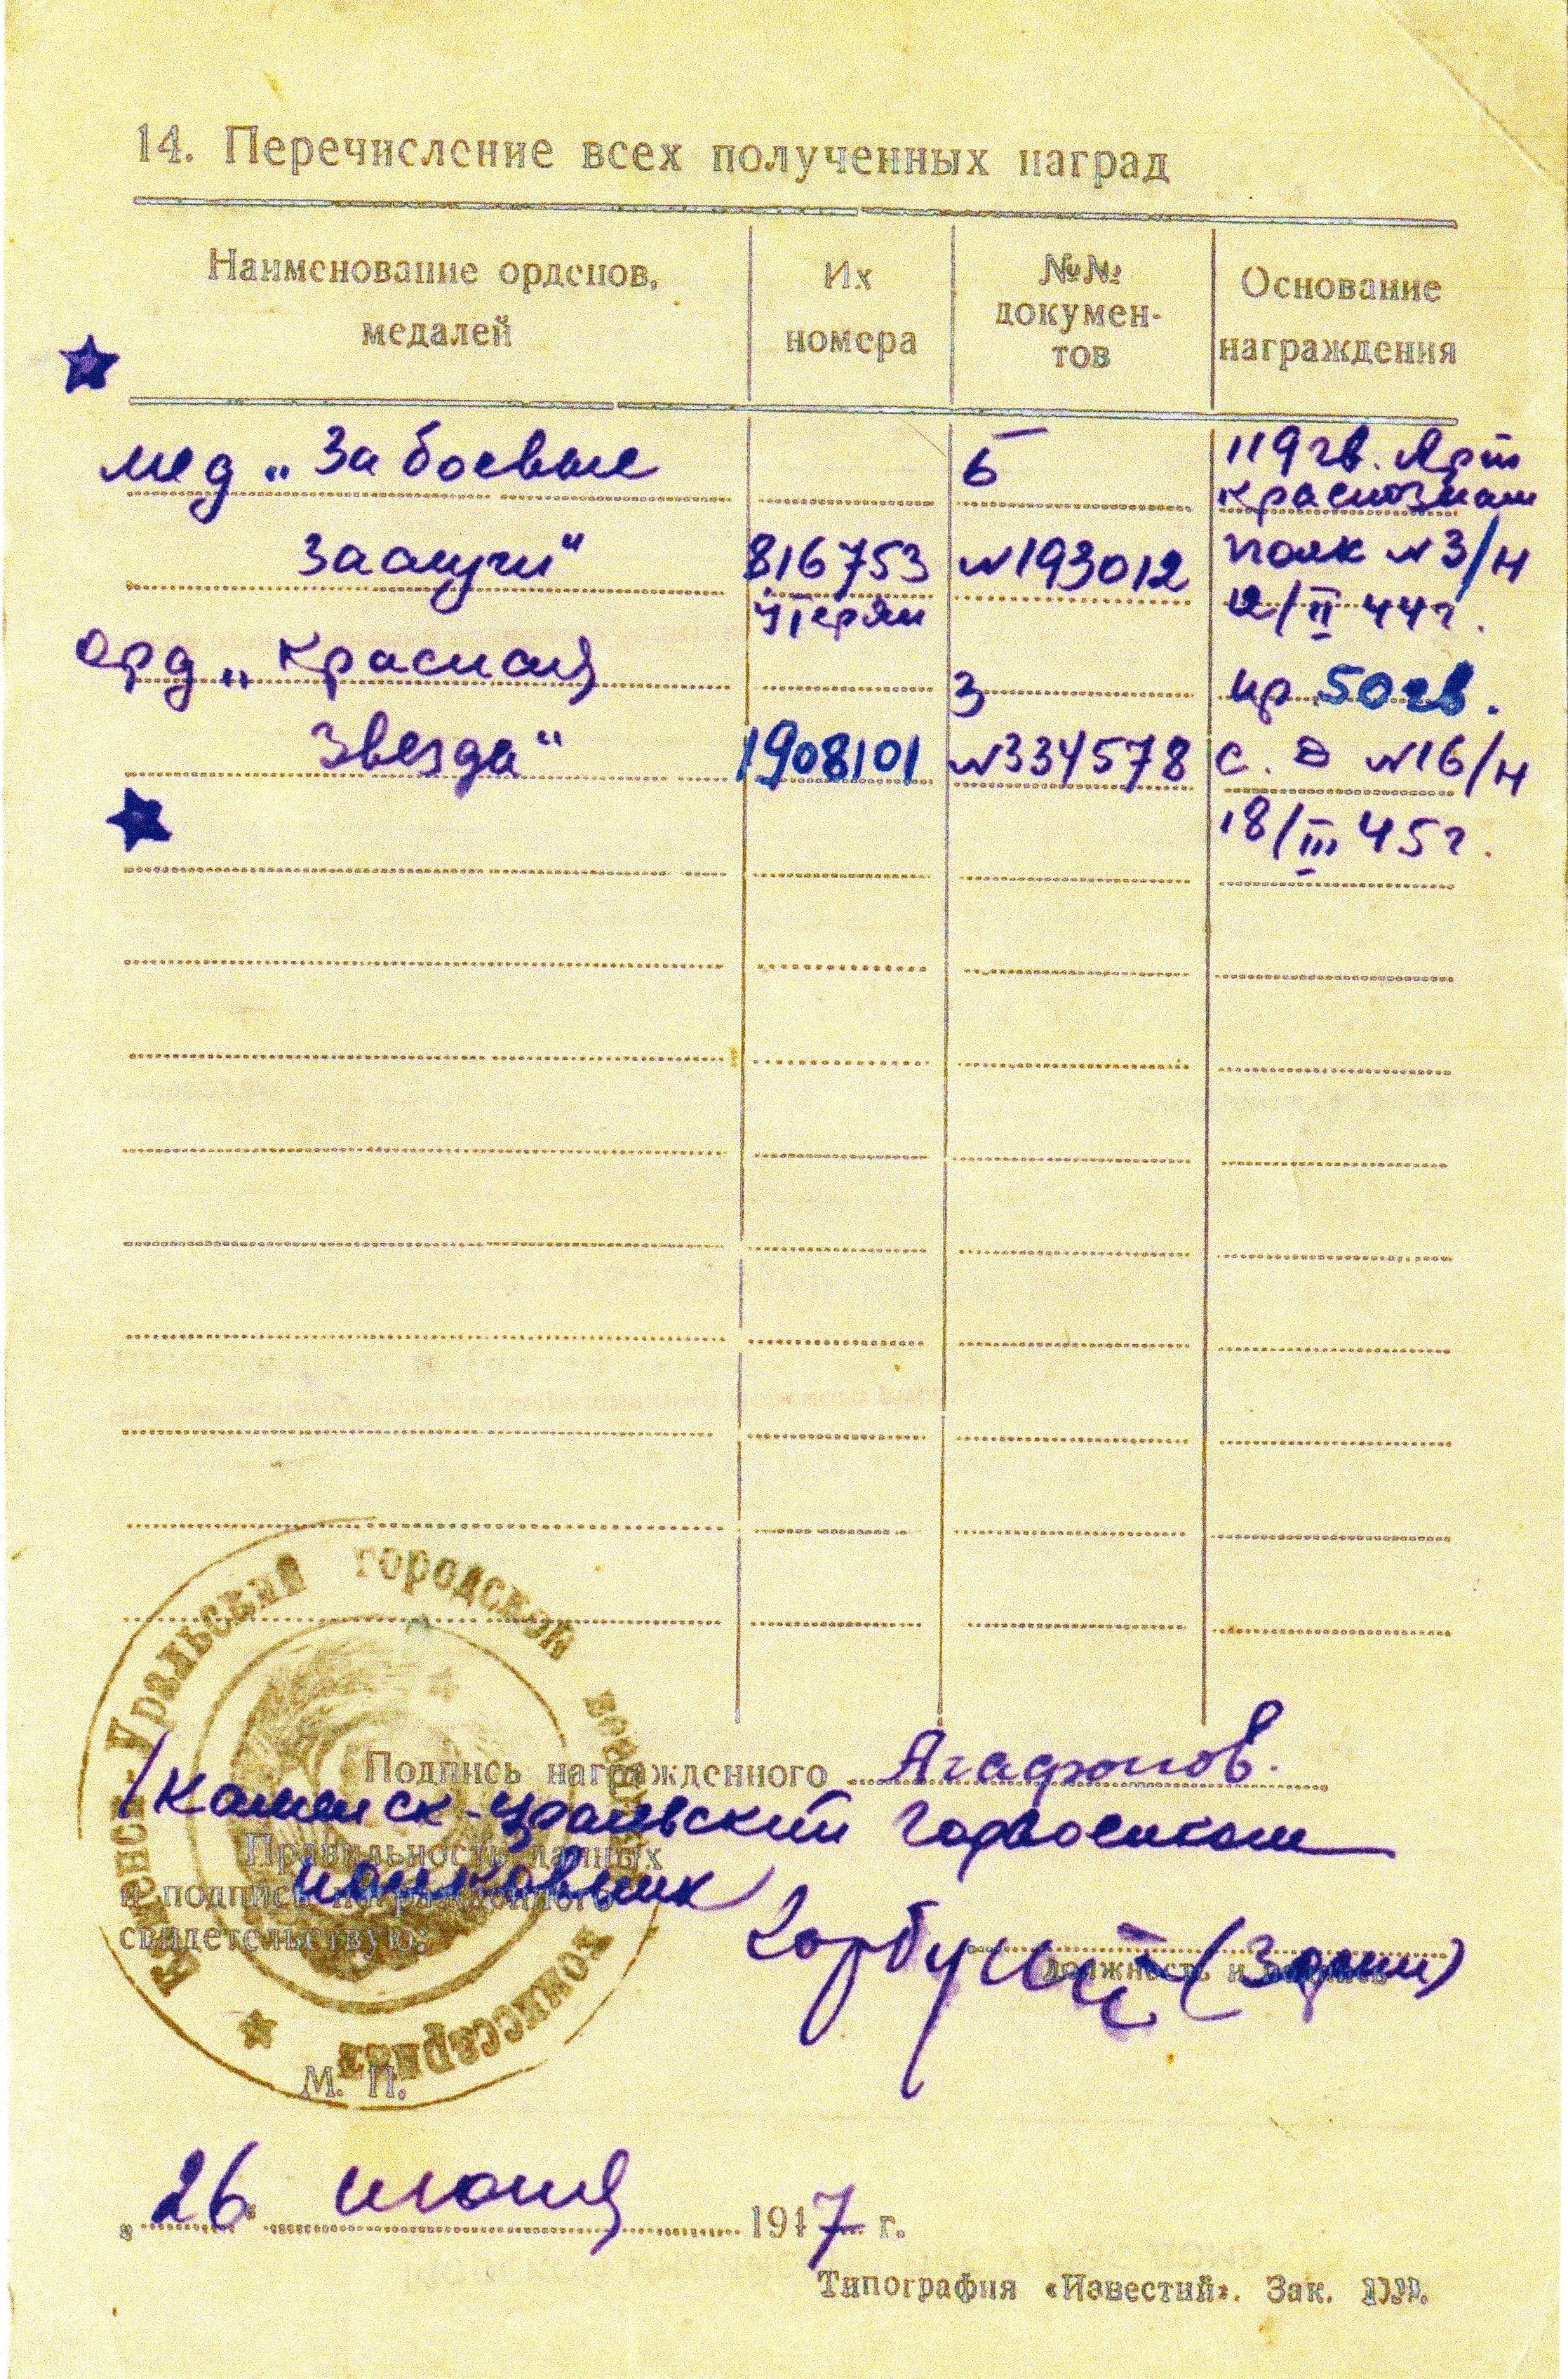 14. Перечисление всех полученных наград
Наименование орденов, медалей
Их номера
№№ докумен-тов
Основание награждения
мед „За боевые
Б
119 гв. Арт
краснознам
заслуги“
816753
№193012
полк №3/н
утерян
12/II 44г.
орд „Красная
З
пр 50 гв.
Звезда“
1908101
№334578
с. д №16/н
18/III 45г.
Подпись награжденного Агафонов.
/Каменск-Уральский горвоенком
Правильность данных
полковник
и подпись награжденного
свидетельствую:
Горбунов
должность и подпись
Каменск-Уральский городской военный комиссариат
М. П.
„26“ июня 1947 г.
Типография «Известий». Зак.